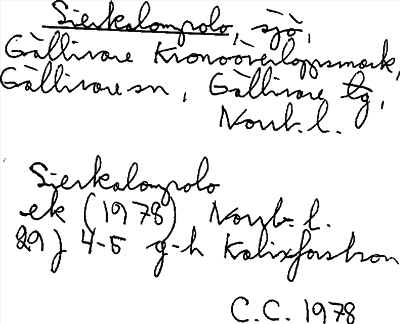 Sierkalompolo, sjö,
Gällivare Kronoöverloppsmark,
Gällivare sn, Gällivare tg,
Norrb. l.
Sierkalompolo
ek (1978) Norrb. l.
29J 4-5 g-h Kalixforsbron
C.C. 1978